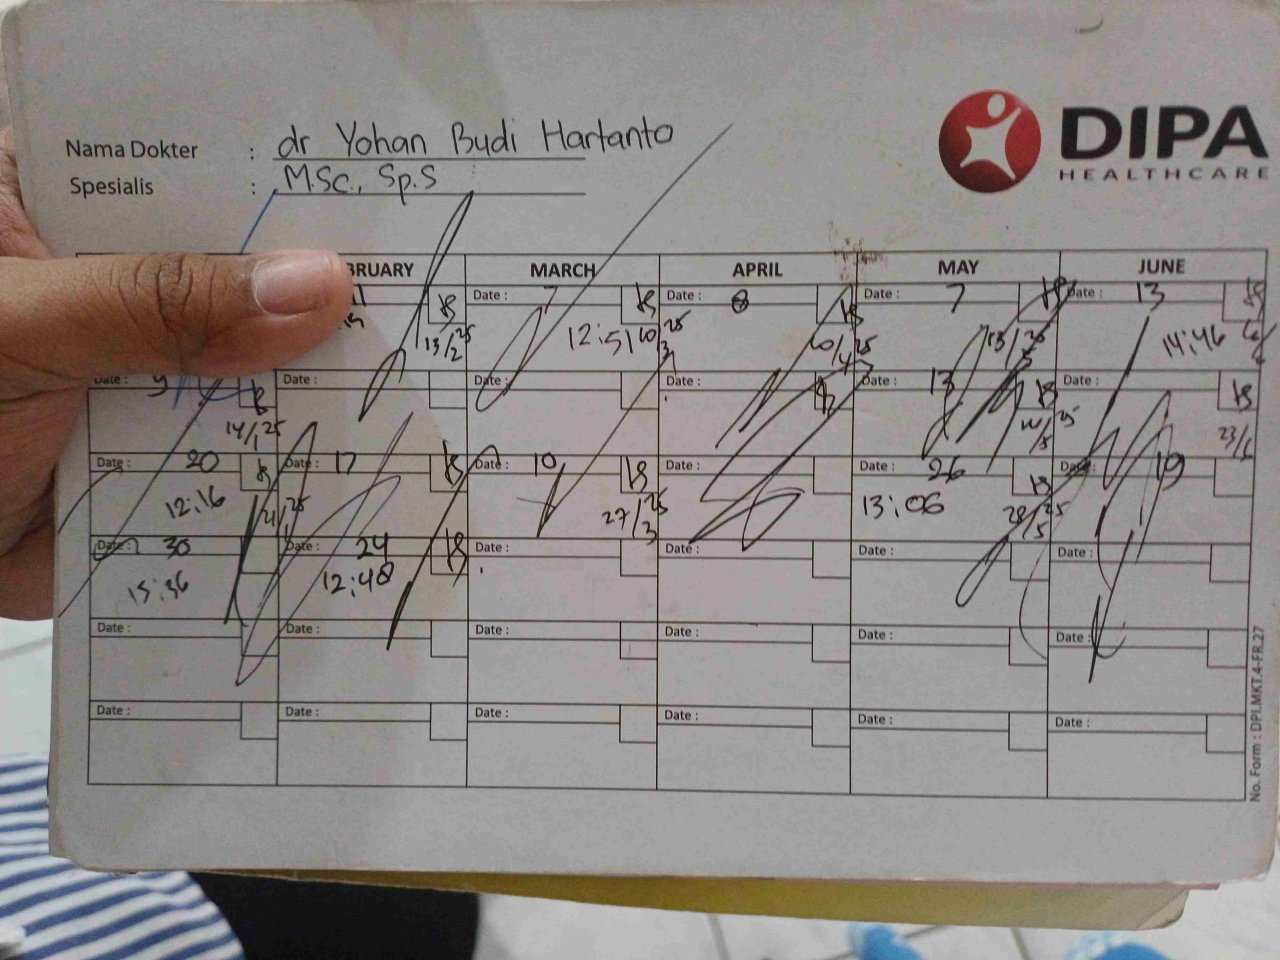 DIPA
HEALTHCARE
Nama Dokter : dr Yohan Budi Hartanto
Spesialis : M.Sc., Sp.S
BRUARY MARCH APRIL MAY JUNE
Date : 7 Date : 8 Date : 7 Date : 13
13/2 25 12:51 10/3 25 10/4 25 13/5 25 14:46
Date : 9 Date : Date : Date : Date : 13 Date :
14/1 25 14/5 25 23/6
Date : 20 Date : 17 Date : 10 Date : Date : 26 Date : 19
12:16 21/1 25 27/3 25 13:06 28/5 25
Date : 30 Date : 24 Date : Date : Date : Date :
15:36 12:48
Date : Date : Date : Date : Date : Date :
Date : Date : Date : Date : Date : Date :
No. Form : DPI.MKT.4-FR.27